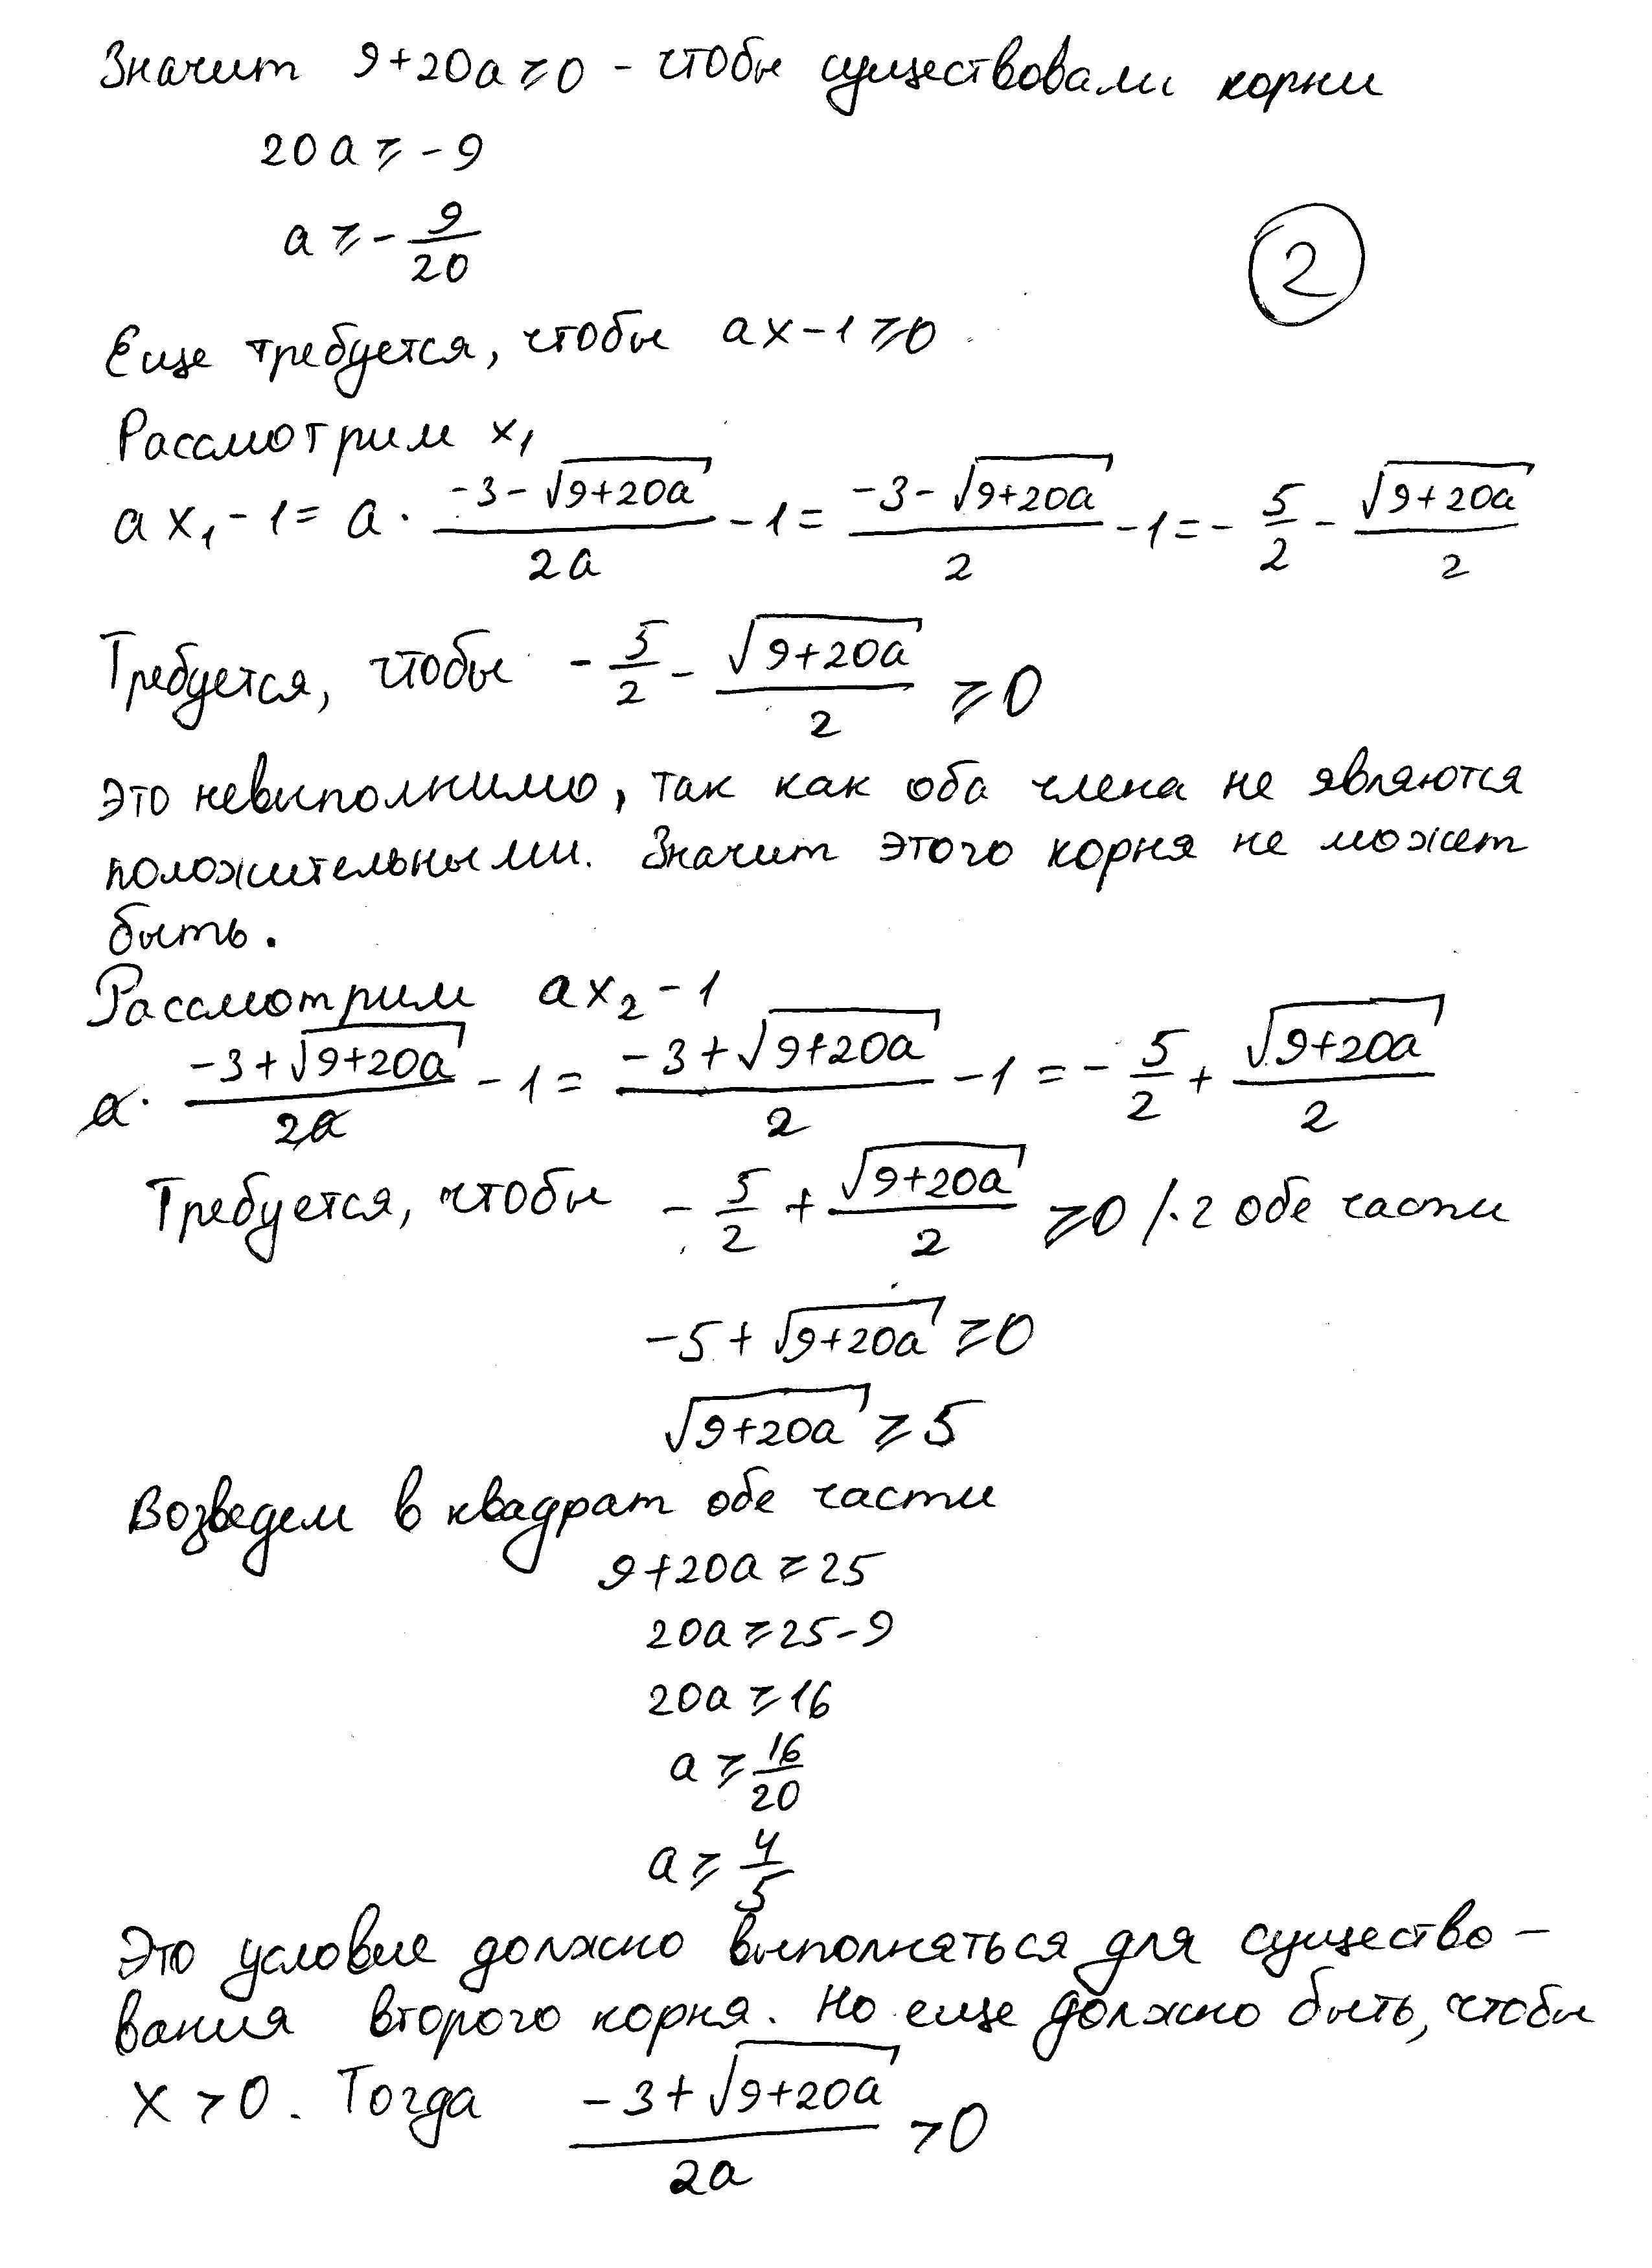 Значит 9+20a ⩾ 0 - чтобы существовали корни
20a ⩾ -9
a ⩾ - 9/20
2
Еще требуется, чтобы ax-1 ⩾ 0
Рассмотрим x₁
ax₁ - 1 = a · (-3-√(9+20a))/(2a) - 1 = (-3-√(9+20a))/2 - 1 = - 5/2 - √(9+20a)/2
Требуется, чтобы - 5/2 - √(9+20a)/2 ⩾ 0
Это невыполнимо, так как оба члена не являются
положительными. Значит этого корня не может
быть.
Рассмотрим ax₂ - 1
a · (-3+√(9+20a))/(2a) - 1 = (-3+√(9+20a))/2 - 1 = - 5/2 + √(9+20a)/2
Требуется, чтобы - 5/2 + √(9+20a)/2 ⩾ 0 / · 2 обе части
-5+√(9+20a) ⩾ 0
√(9+20a) ⩾ 5
Возведем в квадрат обе части
9+20a ⩾ 25
20a ⩾ 25-9
20a ⩾ 16
a ⩾ 16/20
a ⩾ 4/5
Это условие должно выполняться для существо-
вания второго корня. Но еще должно быть, чтобы
x > 0. Тогда (-3+√(9+20a))/(2a) > 0